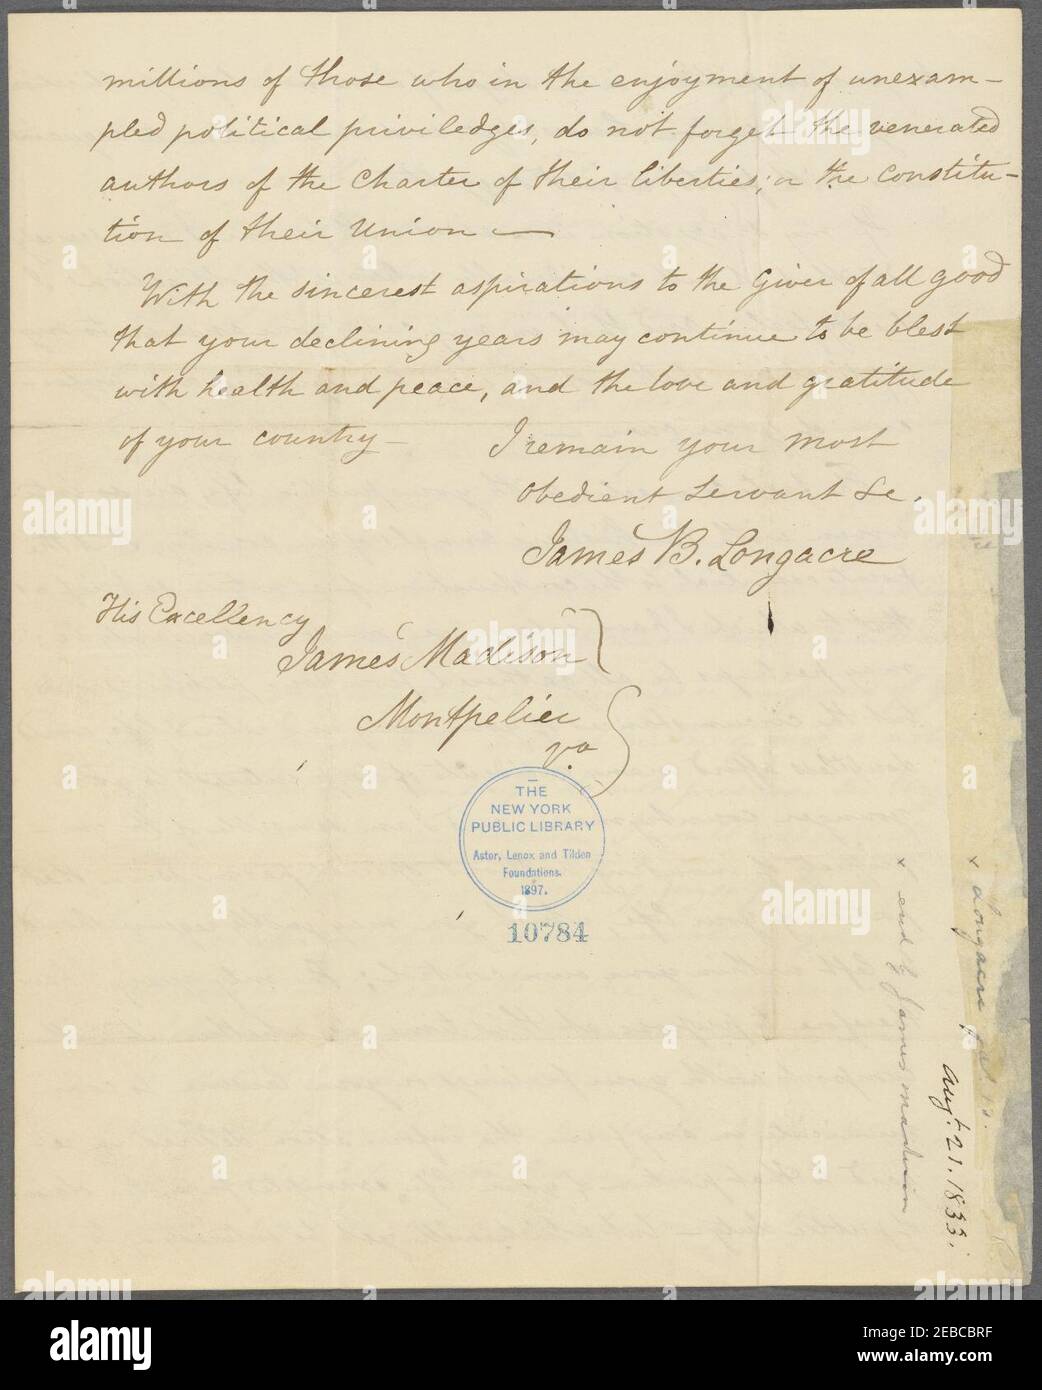 millions of those who in the enjoyment of unexam-
pled political priviledges, do not forget the venerated
authors of the Charter of their liberties; or the Constitu-
tion of their Union —
With the sincerest aspirations to the Giver of all good
that your declining years may continue to be blest
with health and peace, and the love and gratitude
of your country —
I remain your most
obedient Servant &c.
James B. Longacre
His Excellency
James Madison
Montpelier
Va
THE
NEW YORK
PUBLIC LIBRARY
Astor, Lenox and Tilden
Foundations.
1897.
10784
x Longacre
x end by James Madison
Aug. 21. 1833.
alamy
Image ID: 2EBCBRF
www.alamy.com